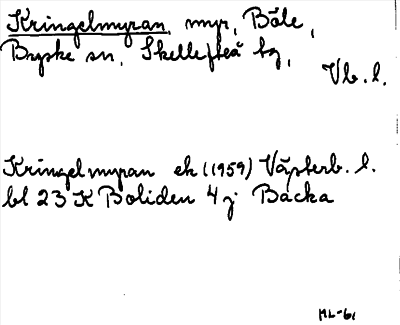 Kringelmyran, myr, Böle,
Byske sn, Skellefteå tg,
Vb. l.
Kringelmyran ek (1959) Västerb. l.
bl 23 K Boliden 4 j Backa
ML-61